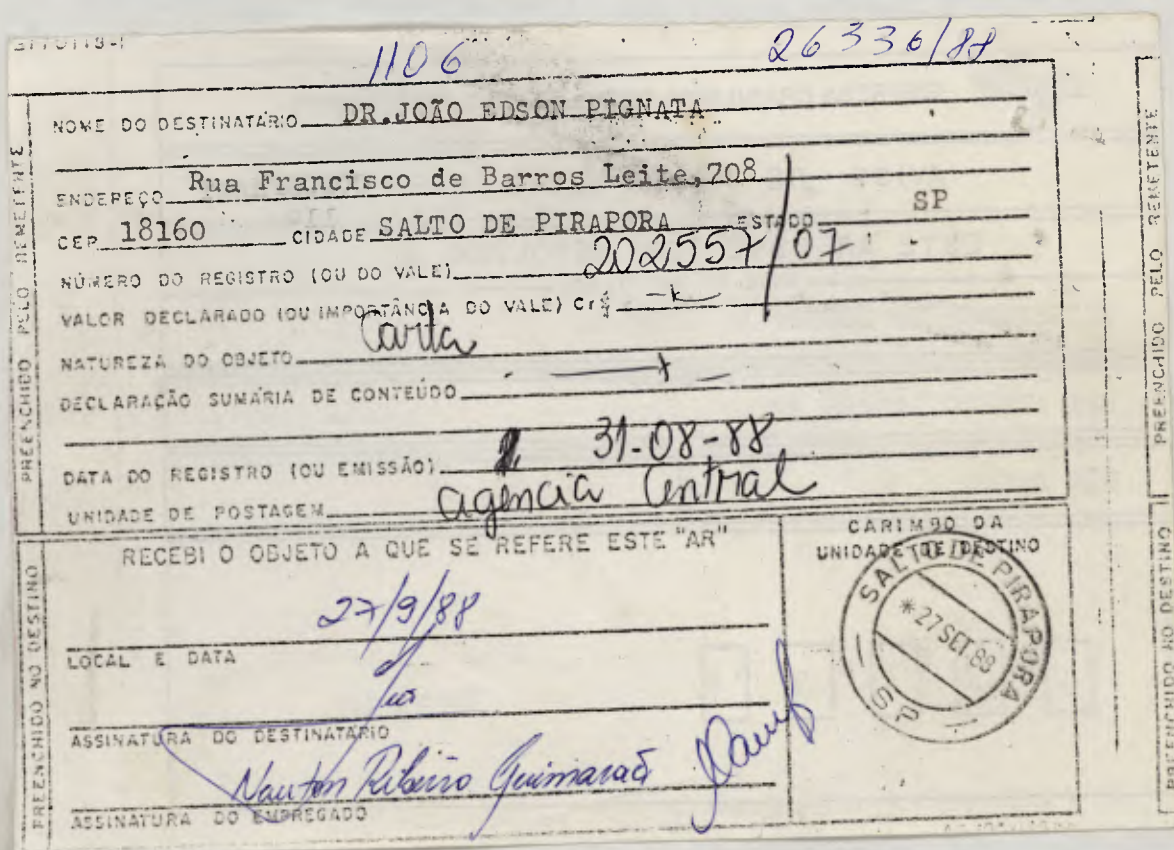 1106 26336/88
PREENCHIDO PELO REMETENTE
NOME DO DESTINATÁRIO DR.JOÃO EDSON PIGNATA
ENDEREÇO Rua Francisco de Barros Leite,708
CEP 18160 CIDADE SALTO DE PIRAPORA ESTADO SP
NÚMERO DO REGISTRO (OU DO VALE) 202557/07
VALOR DECLARADO (OU IMPORTÂNCIA DO VALE) Cr$
NATUREZA DO OBJETO Carta
DECLARAÇÃO SUMÁRIA DE CONTEÚDO
DATA DO REGISTRO (OU EMISSÃO) 31-08-88
UNIDADE DE POSTAGEM agencia Central
PREENCHIDO NO DESTINO
RECEBI O OBJETO A QUE SE REFERE ESTE "AR"
27/9/88
LOCAL E DATA
ASSINATURA DO DESTINATÁRIO
Ribeiro Guimarães
ASSINATURA DO EMPREGADO
CARIMBO DA
UNIDADE DE DESTINO
SALTO DE PIRAPORA
*27 SET 88
SP
PREENCHIDO PELO REMETENTE
PREENCHIDO NO DESTINO